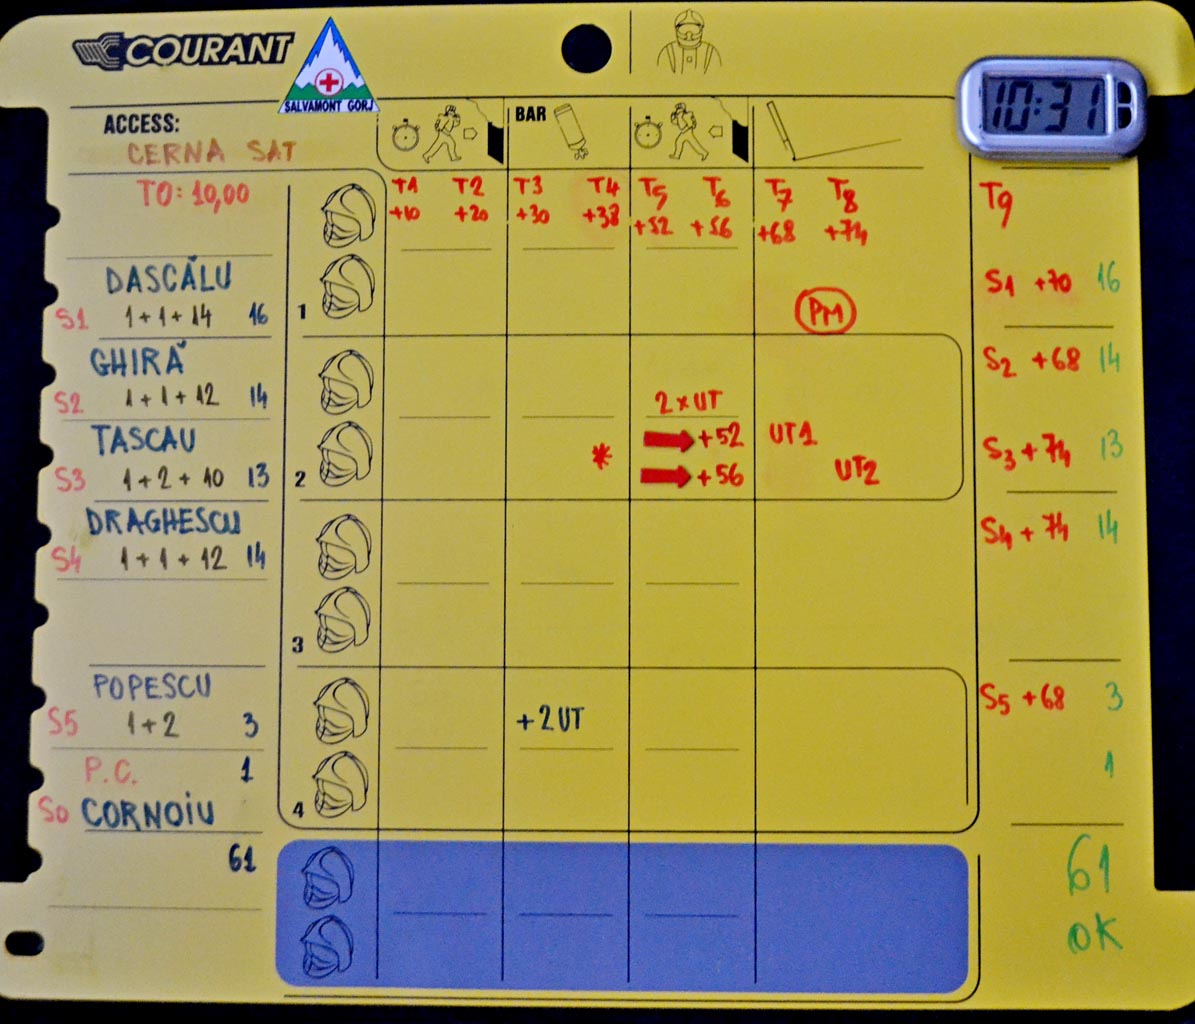 COURANT
SALVAMONT GORJ
10:31
ACCESS:
CERNA SAT
BAR
T0: 10,00
T1 T2 T3 T4 T5 T6 T7 T8 T9
+10 +20 +30 +38 +52 +56 +68 +74
DASCĂLU
S1 1+1+14 16
1
PM
S1 +70 16
GHIRĂ
S2 1+1+12 14
2xUT
S2 +68 14
TASCAU
S3 1+2+10 13
2
*
+52 UT1
+56 UT2
S3 +74 13
DRAGHESCU
S4 1+1+12 14
S4 +74 14
3
POPESCU
S5 1+2 3
+2UT
S5 +68 3
P.C. 1
1
S0 CORNOiU
4
61
61
OK